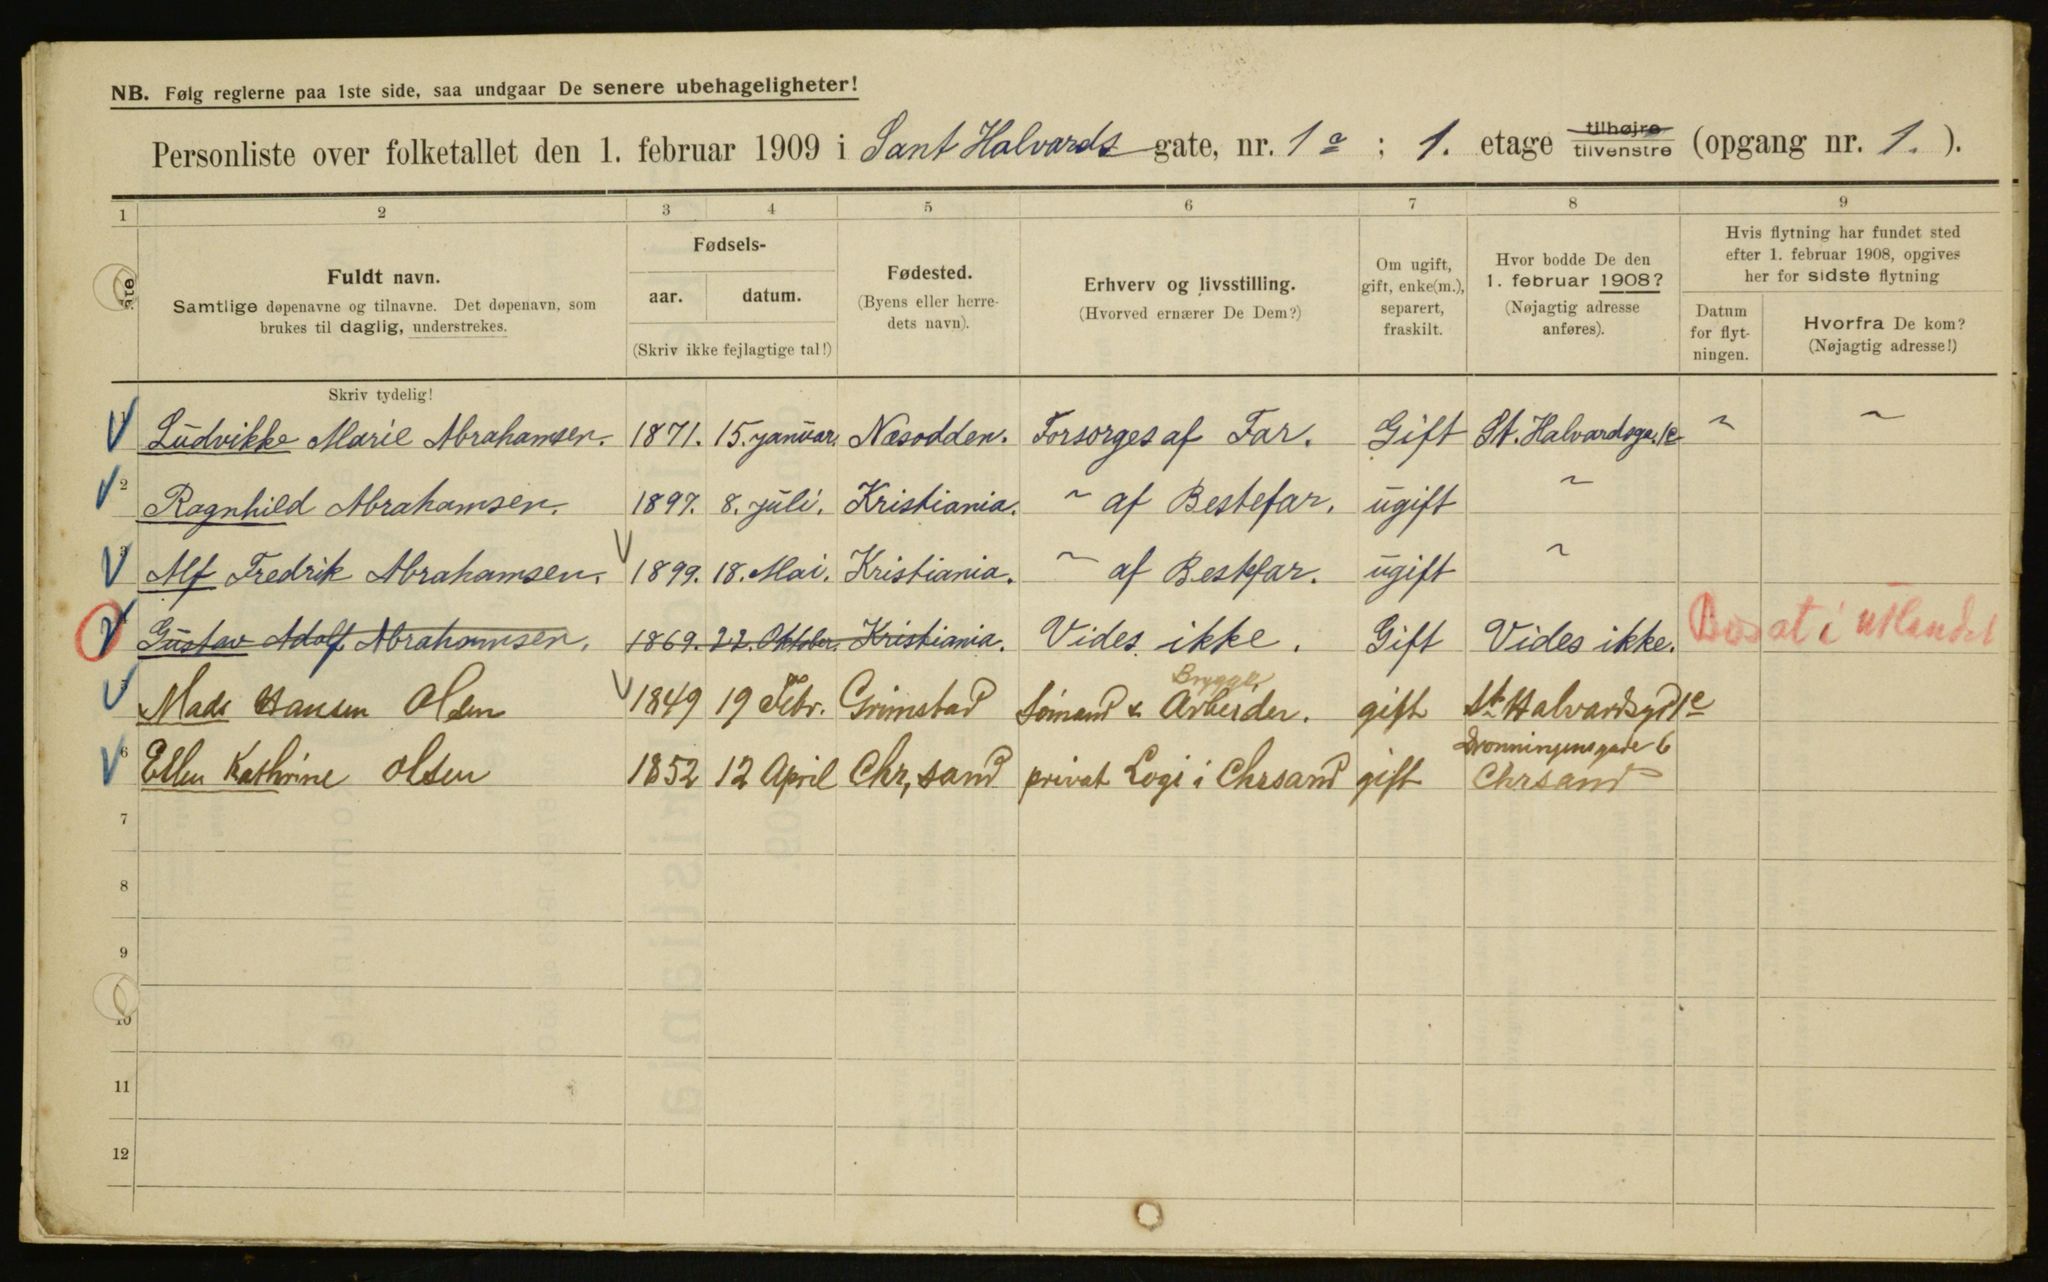 NB. Følg reglerne paa 1ste side, saa undgaar De senere ubehageligheter!
Personliste over folketallet den 1. februar 1909 i Sant Halvards gate, nr. 1 e ; 1. etage tilhøjre tilvenstre (opgang nr. 1. ).
1 2 3 4 5 6 7 8 9
Fuldt navn.
Samtlige døpenavne og tilnavne. Det døpenavn, som
brukes til daglig, understrekes.
Fødsels-
aar. datum.
(Skriv ikke fejlagtige tal!)
Fødested.
(Byens eller herre-
dets navn).
Erhverv og livsstilling.
(Hvorved ernærer De Dem?)
Om ugift,
gift, enke(m.),
separert,
fraskilt.
Hvor bodde De den
1. februar 1908?
(Nøjagtig adresse
anføres).
Hvis flytning har fundet sted
efter 1. februar 1908, opgives
her for sidste flytning
Datum
for flyt-
ningen.
Hvorfra De kom?
(Nøjagtig adresse!)
Skriv tydelig!
Ludvikke Marie Abrahamsen. 1871. 15. januar. Næsodden. Forsorges af Far. Gift St. Halvardsga. 1e ~ ~
2 Ragnhild Abrahamsen. 1897. 8. juli. Kristiania. ~ af Bestefar. ugift ~
3 Alf Fredrik Abrahamsen. 1899. 18. Mai. Kristiania. ~ af Bestefar. ugift ~
Gustav Adolf Abrahamsen. 1869. 22. Oktober. Kristiania. Vides ikke. Gift Vides ikke. Bosat i utlandet
5 Mads Hansen Olsen 1849 19 Febr. Grimstad Sømand & Brygge Arbeider. gift St Halvardsgd 1e
6 Ellen Kathrine Olsen 1852 12 April Chr,sand privat Logi i Chrsand gift Dronningensgade 6
Chrsand
7
8
9
10
11
12